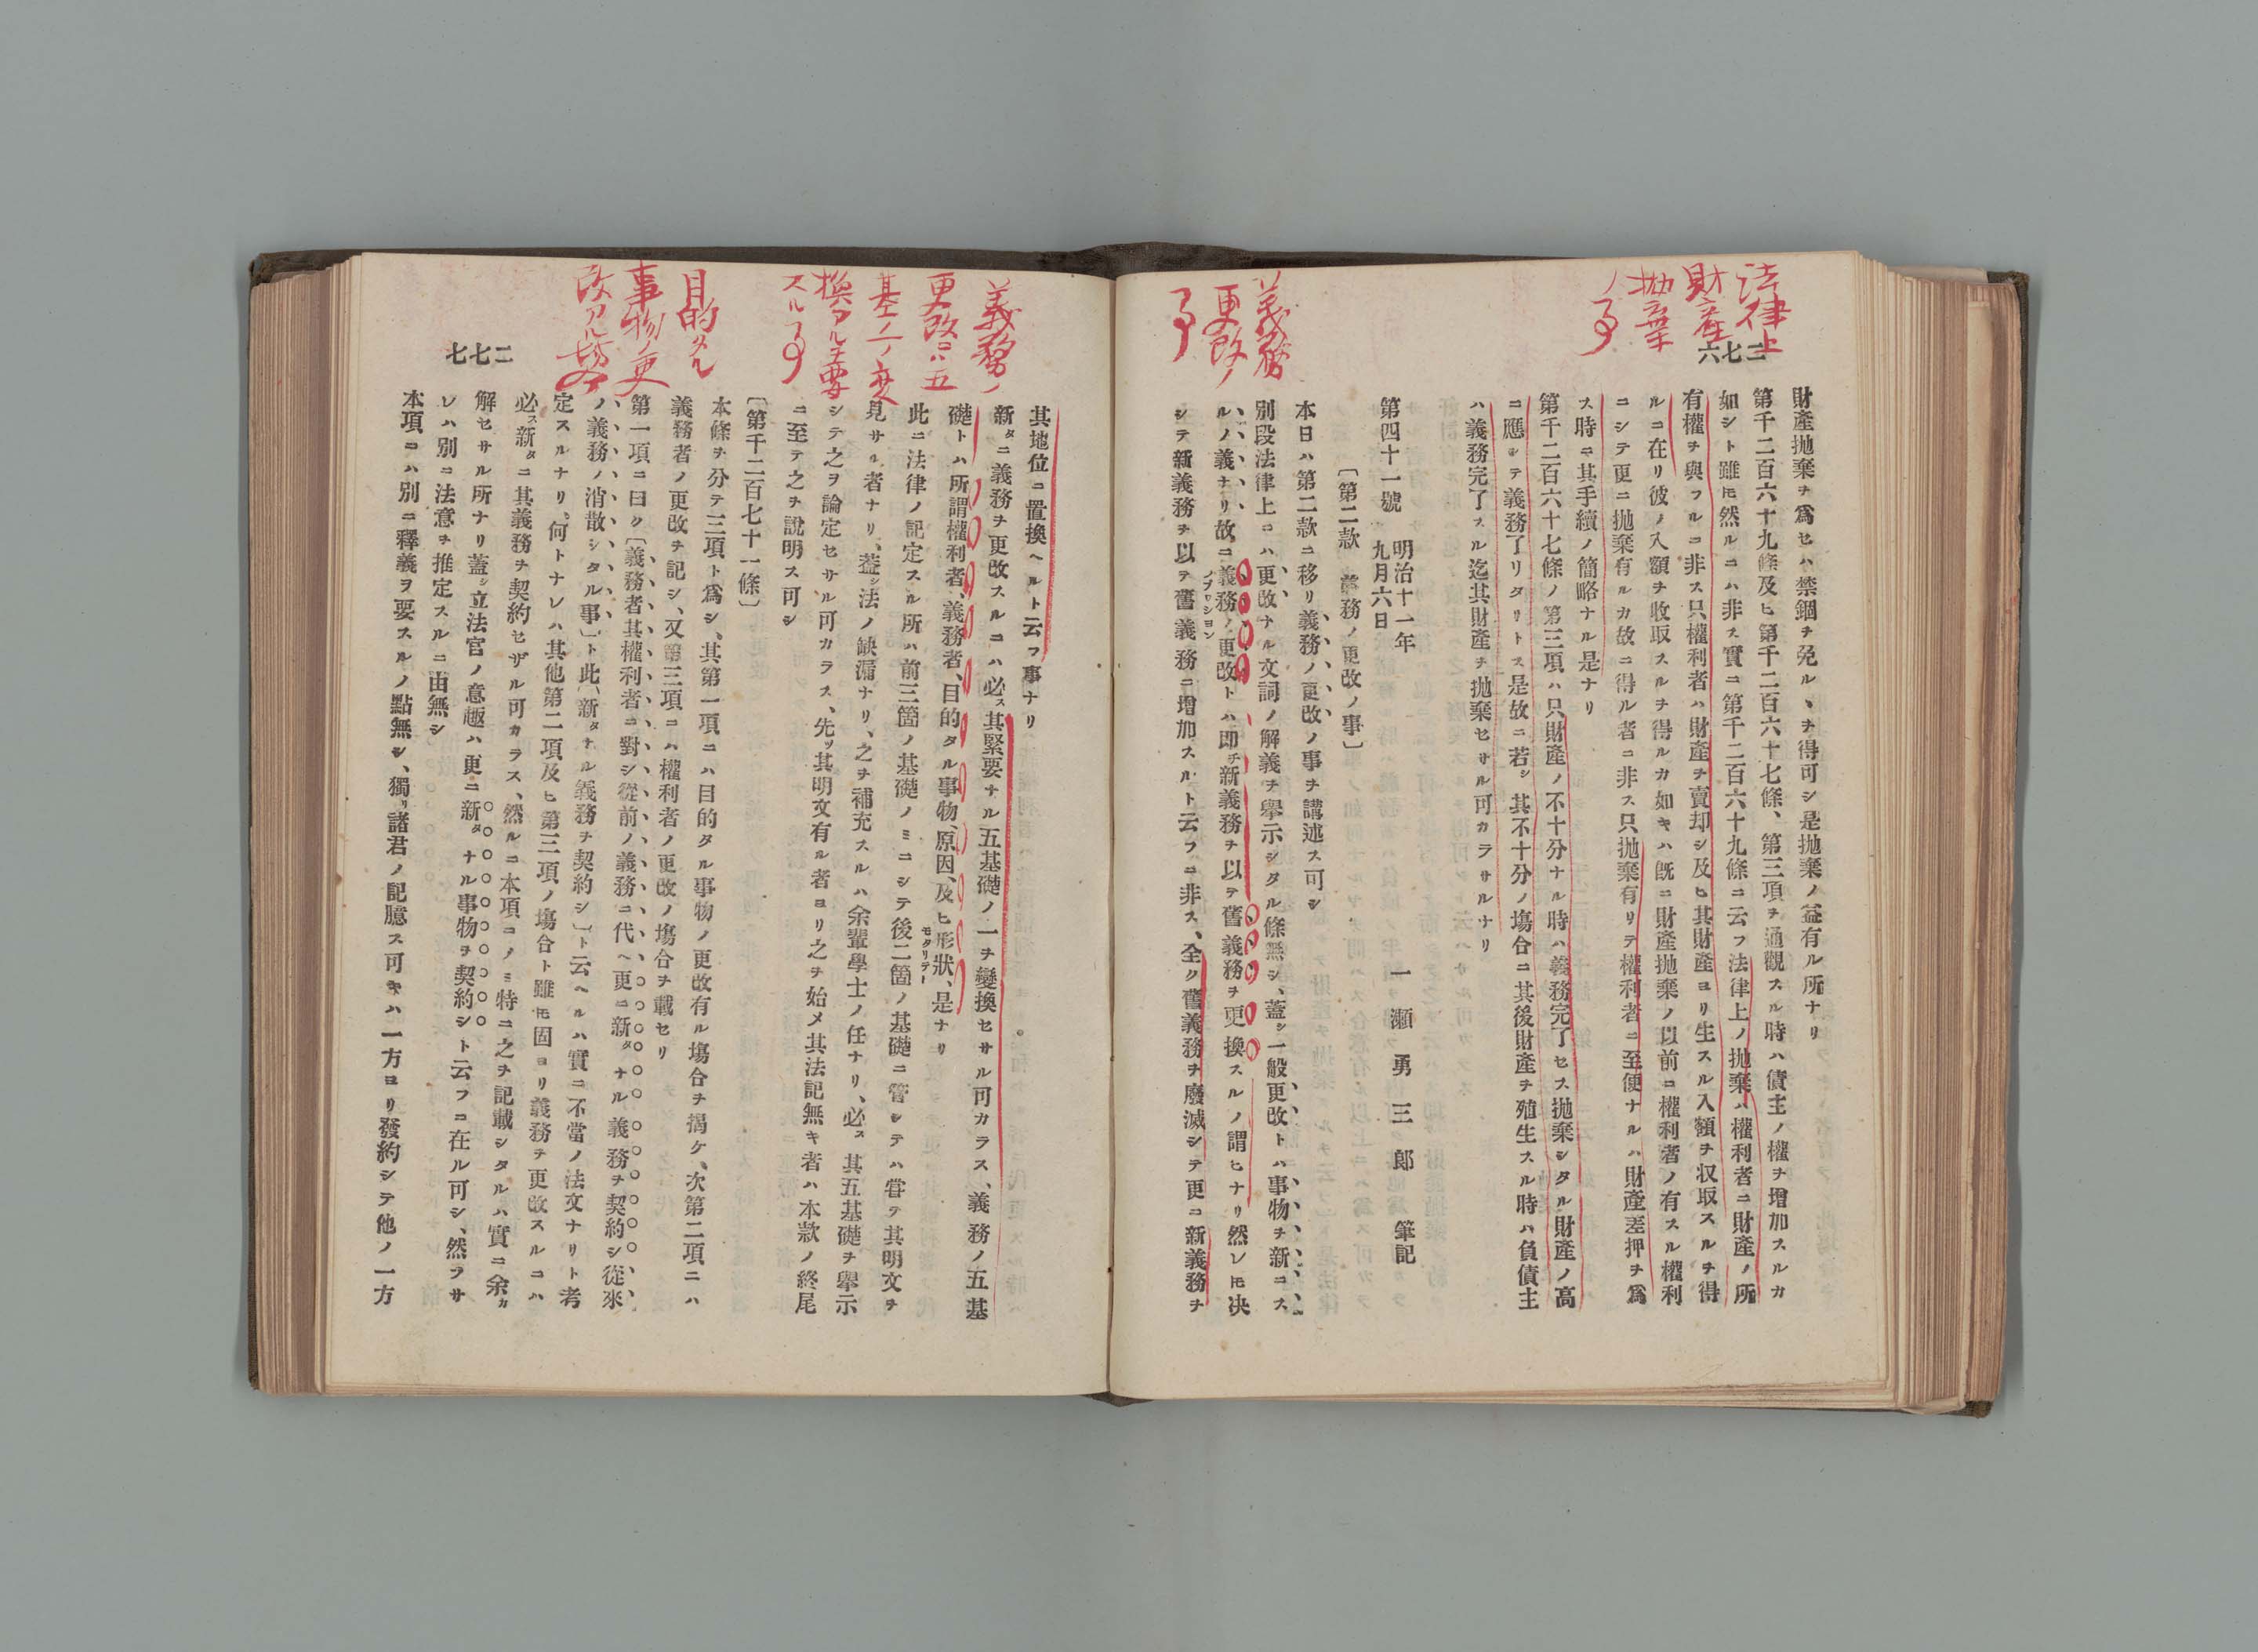 法律上
財産
拋棄
ノ事
二七六
財產拋棄ヲ爲セハ禁錮ヲ免ルヽヲ得可シ是拋棄ノ益有ル所ナリ
第千二百六十九條及ヒ第千二百六十七條、第三項ヲ通觀スル時ハ債主ノ權ヲ增加スルカ
如シト雖𪜈然ルニハ非ス實ニ第千二百六十九條ニ云フ法律上ノ拋棄ハ權利者ニ財產ノ所
有權ヲ與フルニ非ス只權利者ハ財產ヲ賣却シ及ヒ其財產ヨリ生スル入額ヲ収取スルヲ得
ルニ在リ彼ノ入額ヲ收取スルヲ得ルカ如キハ既ニ財產拋棄ノ以前ニ權利者ノ有スル權利
ニシテ更ニ拋棄有ルカ故ニ得ル者ニ非ス只拋棄有リテ權利者ニ至便ナルハ財產差押ヲ爲
ス時ニ其手續ノ簡略ナル是ナリ
第千二百六十七條ノ第三項ハ只財產ノ不十分ナル時ハ義務完了セス拋棄シタル財產ノ高
ニ應シテ義務了リタリトス是故ニ若シ其不十分ノ塲合ニ其後財產ヲ殖生スル時ハ負債主
ハ義務完了スル迄其財產ヲ拋棄セサル可カラサルナリ
第四十一號 明治十一年
九月六日 一瀬勇三郎 筆記
〔第二款 義務ノ更改ノ事〕
義務
更改ノ
事
本日ハ第二款ニ移リ義務ノ更改ノ事ヲ講述ス可シ
別段法律上ニハ更改ナル文詞ノ解義ヲ擧示シタル條無シ、蓋シ一般更改トハ事物ヲ新ニス
ルノ義ナリ故ニ義務ノ更改トハ即チ新義務ヲ以テ舊義務ヲ更換スルノ謂ヒナリ然レ𪜈决
ノブァション
シテ新義務ヲ以テ舊義務ニ增加スルト云フニ非ス、全ク舊義務ヲ廢滅シテ更ニ新義務ヲ
義務ノ
更改ニハ五
基ノ一ノ変
換アル主要
スル事
目的タル
事物ノ更
改アル塲
合
二七七
其地位ニ置換ヘルト云フ事ナリ
新タニ義務ヲ更改スルニハ必ス其緊要ナル五基礎ノ一ヲ變換セサル可カラス、義務ノ五基
礎トハ所謂權利者、義務者、目的タル事物、原因、及ヒ形狀、是ナリ
モダリテー
此ニ法律ノ記定スル所ハ前三箇ノ基礎ノミニシテ後二箇ノ基礎ニ管シテハ甞テ其明文ヲ
見サル者ナリ、蓋シ法ノ缺漏ナリ、之ヲ補充スルハ余輩學士ノ任ナリ、必ス其五基礎ヲ擧示
シテ之ヲ論定セサル可カラス、先ツ其明文有ル者ヨリ之ヲ始メ其法記無キ者ハ本款ノ終尾
ニ至テ之ヲ說明ス可シ
〔第千二百七十一條〕
本條ヲ分テ三項ト爲シ、其第一項ニハ目的タル事物ノ更改有ル塲合ヲ揭ケ、次第二項ニハ
義務者ノ更改ヲ記シ、又第三項ニハ權利者ノ更改ノ塲合ヲ載セリ
第一項ニ曰ク〔義務者其權利者ニ對シ從前ノ義務ニ代ヘ更ニ新タナル義務ヲ契約シ從來
ノ義務ノ消散シタル事〕ト此〔新タナル義務ヲ契約シ〕ト云ヘルハ實ニ不當ノ法文ナリト考
定スルナリ、何トナレハ其他第二項及ヒ第三項ノ塲合ト雖𪜈固ヨリ義務ヲ更改スルニハ
必ス新タニ其義務ヲ契約セザル可カラス、然ルニ本項ニノミ特ニ之ヲ記載シタルハ實ニ余カ
解セサル所ナリ蓋シ立法官ノ意趣ハ更ニ新タナル事物ヲ契約シト云フニ在ル可シ、然ラサ
レハ別ニ法意ヲ推定スルニ由無シ
本項ニハ別ニ釋義ヲ要スルノ點無シ、獨リ諸君ノ記臆ス可キハ一方ヨリ發約シテ他ノ一方